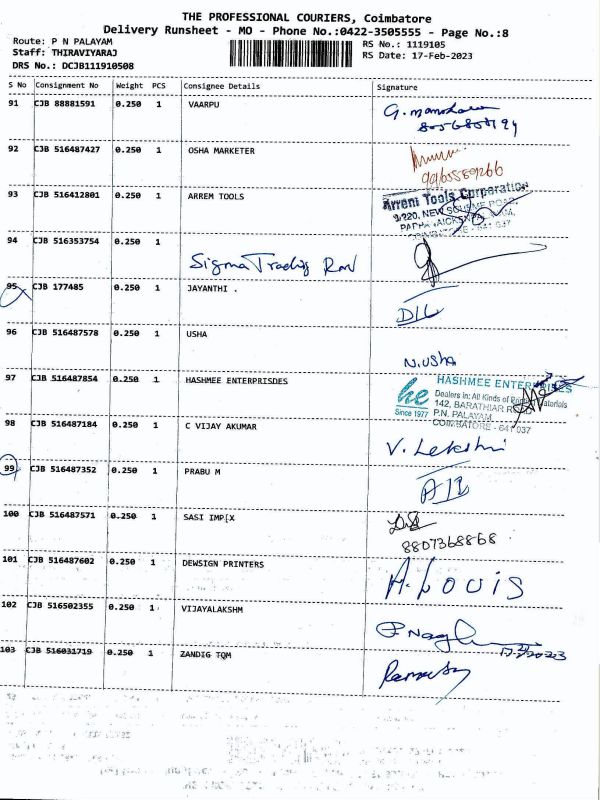 THE PROFESSIONAL COURIERS, Coimbatore
Delivery Runsheet - MO - Phone No.:0422-3505555 - Page No.:8
Route: P N PALAYAM
Staff: THIRAVIYARAJ
DRS No.: DCJB111910508
RS No.: 1119105
RS Date: 17-Feb-2023
S No Consignment No Weight PCS Consignee Details Signature
91 CJB 88881591 0.250 1 VAARPU
92 CJB 516487427 0.250 1 OSHA MARKETER
93 CJB 516412801 0.250 1 ARREM TOOLS
Arrem Tools Corporation
9/220, NEW SCHEME ROAD,
94 CJB 516353754 0.250 1
Sigma Trading
95 CJB 177485 0.250 1 JAYANTHI .
D/L
96 CJB 516487578 0.250 1 USHA
N.USHA
97 CJB 516487854 0.250 1 HASHMEE ENTERPRISDES
HASHMEE ENTERPRISES
he
Since 1977
Dealers in: All Kinds of Materials
142, BARATHIAR
P.N. PALAYAM
COIMBATORE - 641 037
98 CJB 516487184 0.250 1 C VIJAY AKUMAR
V. Lekshmi
99 CJB 516487352 0.250 1 PRABU M
100 CJB 516487571 0.250 1 SASI IMP[X
8807368868
101 CJB 516487602 0.250 1 DEWSIGN PRINTERS
A. LOUIS
102 CJB 516502355 0.250 1 VIJAYALAKSHM
103 CJB 516031719 0.250 1 ZANDIG TQM